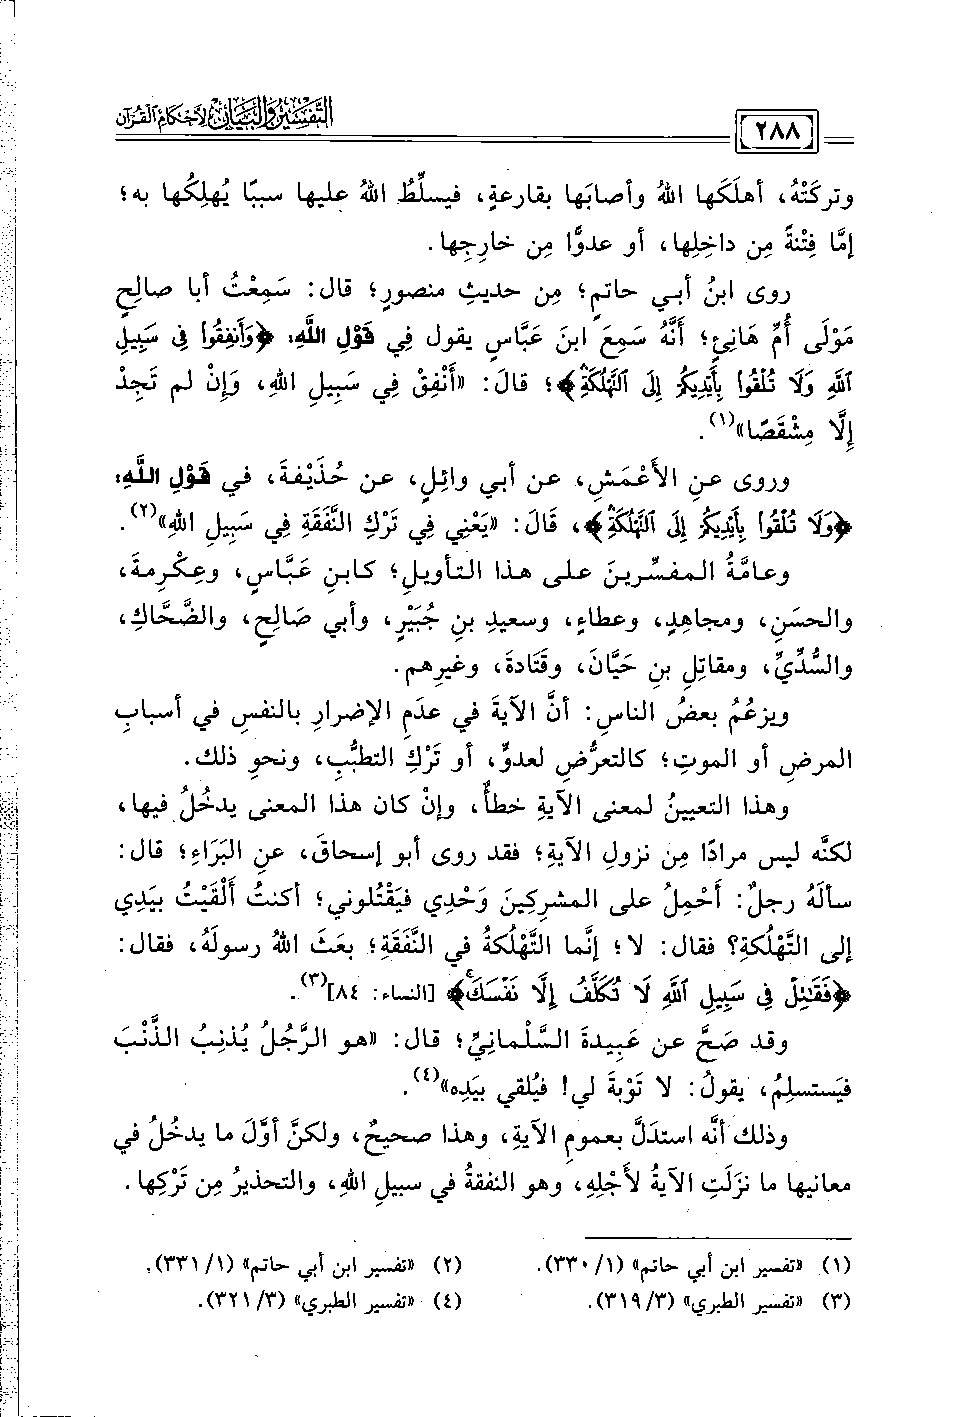 التَّفْسِيرُ وَالْبَيَانُ لِأَحْكَامِ الْقُرْآنِ
٢٨٨
وتركَتْهُ، أهلَكَها اللهُ وأصابَها بقارعةٍ، فيسلِّطُ اللهُ عليها سببًا يُهلِكُها به؛
إمَّا فِتْنةً مِن داخِلِها، أو عدوًّا مِن خارِجِها.
روى ابنُ أبي حاتمٍ؛ مِن حديثِ منصورٍ؛ قال: سَمِعْتُ أبا صالحٍ
مَوْلَى أُمِّ هَانِئٍ؛ أنَّهُ سَمِعَ ابنَ عبَّاسٍ يقول فِي قَوْلِ اللهِ: ﴿وَأَنفِقُوا۟ فِى سَبِيلِ
ٱللَّهِ وَلَا تُلْقُوا۟ بِأَيْدِيكُمْ إِلَى ٱلتَّهْلُكَةِ﴾؛ قالَ: «أَنْفِقْ فِي سَبِيلِ اللهِ، وَإِنْ لم تَجِدْ
إِلَّا مِشْقَصًا»(١).
وروى عنِ الأَعْمَشِ، عن أبي وائلٍ، عن حُذَيْفةَ، في قَوْلِ اللهِ:
﴿وَلَا تُلْقُوا۟ بِأَيْدِيكُمْ إِلَى ٱلتَّهْلُكَةِ﴾، قَالَ: «يَعْنِي فِي تَرْكِ النَّفَقَةِ فِي سَبِيلِ اللهِ»(٢).
وعامَّةُ المفسِّرينَ على هذا التأويلِ؛ كابنِ عبَّاسٍ، وعِكْرِمةَ،
والحسَنِ، ومجاهِدٍ، وعطاءٍ، وسعيدِ بنِ جُبَيْرٍ، وأبي صَالِحٍ، والضَّحَّاكِ،
والسُّدِّيِّ، ومقاتلِ بنِ حَيَّانَ، وقَتَادةَ، وغيرِهم.
ويزعُمُ بعضُ الناسِ: أنَّ الآيةَ في عدَمِ الإضرارِ بالنفسِ في أسبابِ
المرضِ أو الموتِ؛ كالتعرُّضِ لعدوٍّ، أو تَرْكِ التطبُّبِ، ونحوِ ذلك.
وهذا التعيينُ لمعنى الآيةِ خطأٌ، وإنْ كان هذا المعنى يدخُلُ فيها،
لكنَّه ليس مرادًا مِن نزولِ الآيةِ؛ فقد روى أبو إسحاقَ، عنِ البَرَاءِ؛ قال:
سألَهُ رجلٌ: أَحْمِلُ على المشرِكِينَ وَحْدِي فيَقْتُلوني؛ أكنتُ أَلْقَيْتُ بيَدِي
إلى التَّهْلُكةِ؟ فقال: لا؛ إنَّما التَّهْلُكةُ في النَّفَقةِ؛ بعَثَ اللهُ رسولَهُ، فقال:
﴿فَقَٰتِلْ فِى سَبِيلِ ٱللَّهِ لَا تُكَلَّفُ إِلَّا نَفْسَكَ﴾ [النساء: ٨٤](٣).
وقد صَحَّ عن عَبِيدةَ السَّلْمانيِّ؛ قال: «هو الرَّجُلُ يُذنِبُ الذَّنْبَ
فيَستسلِمُ، يقولُ: لا تَوْبةَ لي! فيُلقي بيَدِه»(٤).
وذلك أنَّه استدَلَّ بعمومِ الآيةِ، وهذا صحيحٌ، ولكنَّ أوَّلَ ما يدخُلُ في
معانيها ما نزَلَتِ الآيةُ لأَجْلِهِ، وهو النفقةُ في سبيلِ اللهِ، والتحذيرُ مِن تَرْكِها.
(١) «تفسير ابن أبي حاتم» (١/ ٣٣٠).
(٢) «تفسير ابن أبي حاتم» (١/ ٣٣١).
(٣) «تفسير الطبري» (٣/ ٣١٩).
(٤) «تفسير الطبري» (٣/ ٣٢١).